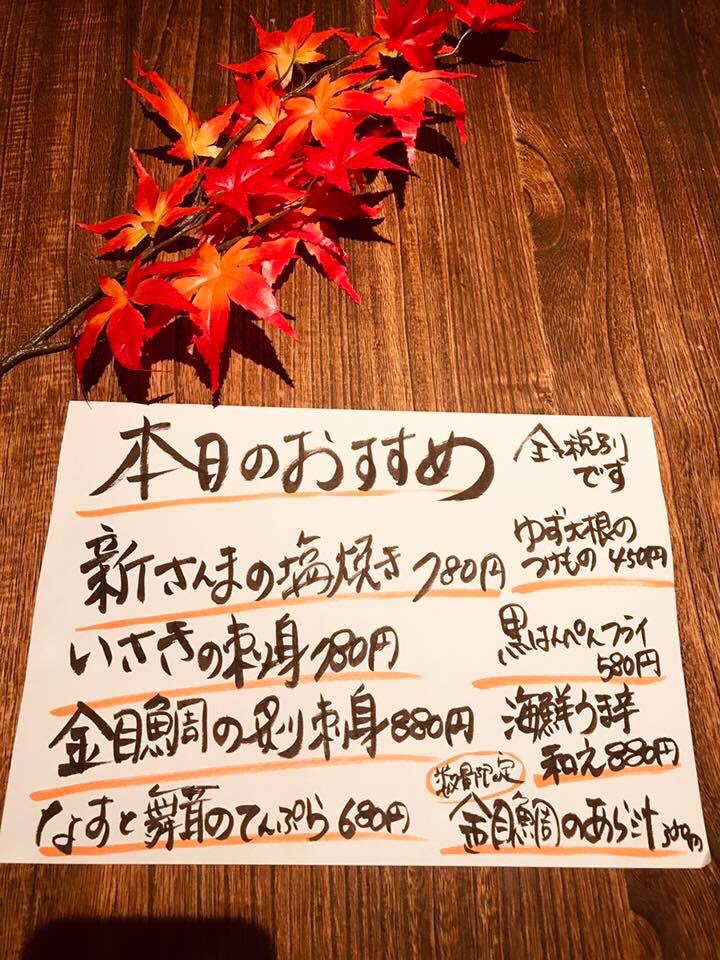 本日のおすすめ
全て税別
です
新さんまの塩焼き 780円
いさきの刺身 780円
金目鯛の炙り刺身 880円
なすと舞茸のてんぷら 680円
ゆず大根の
つけもの 450円
黒はんぺんフライ
580円
海鮮うま辛
和え 880円
数量限定
金目鯛のあら汁